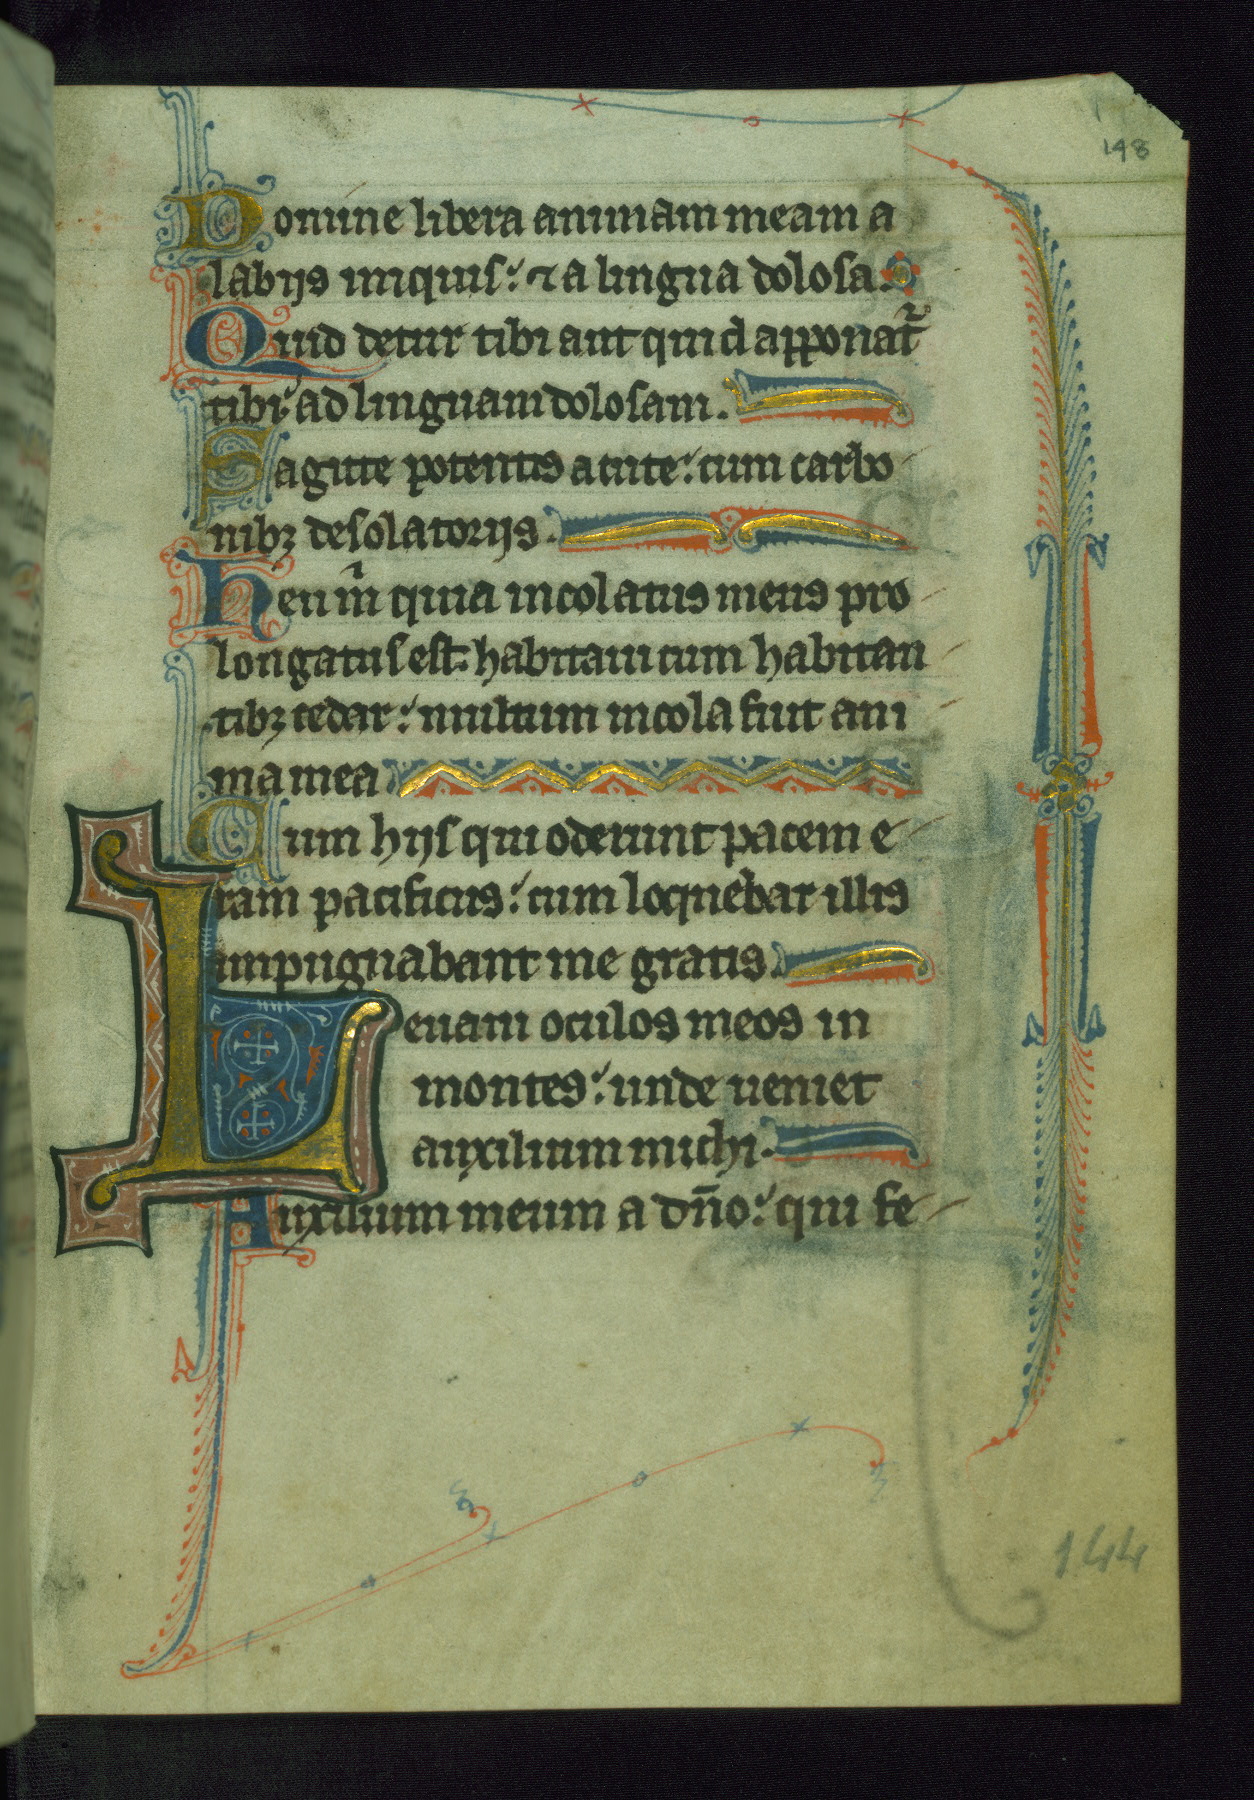 148
Domine libera animam meam a
labijs iniquis: ⁊ a lingua dolosa.
Quid detur tibi aut quid apponat᷑
tibi: ad linguam dolosam.
Sagitte potentis acute: cum carbo
nibꝫ desolatorijs.
Heu m̃ quia incolatus meus pro
longatus est: habitaui cum habitan
tibꝫ cedar: multum incola fuit ani
ma mea
Cum hijs qui oderunt pacem e
ram pacificus: cum loquebar illis
impugnabant me gratis
Leuaui oculos meos in
montes: unde ueniet
auxilium michi.
Auxilium meum a dño: qui fe
144